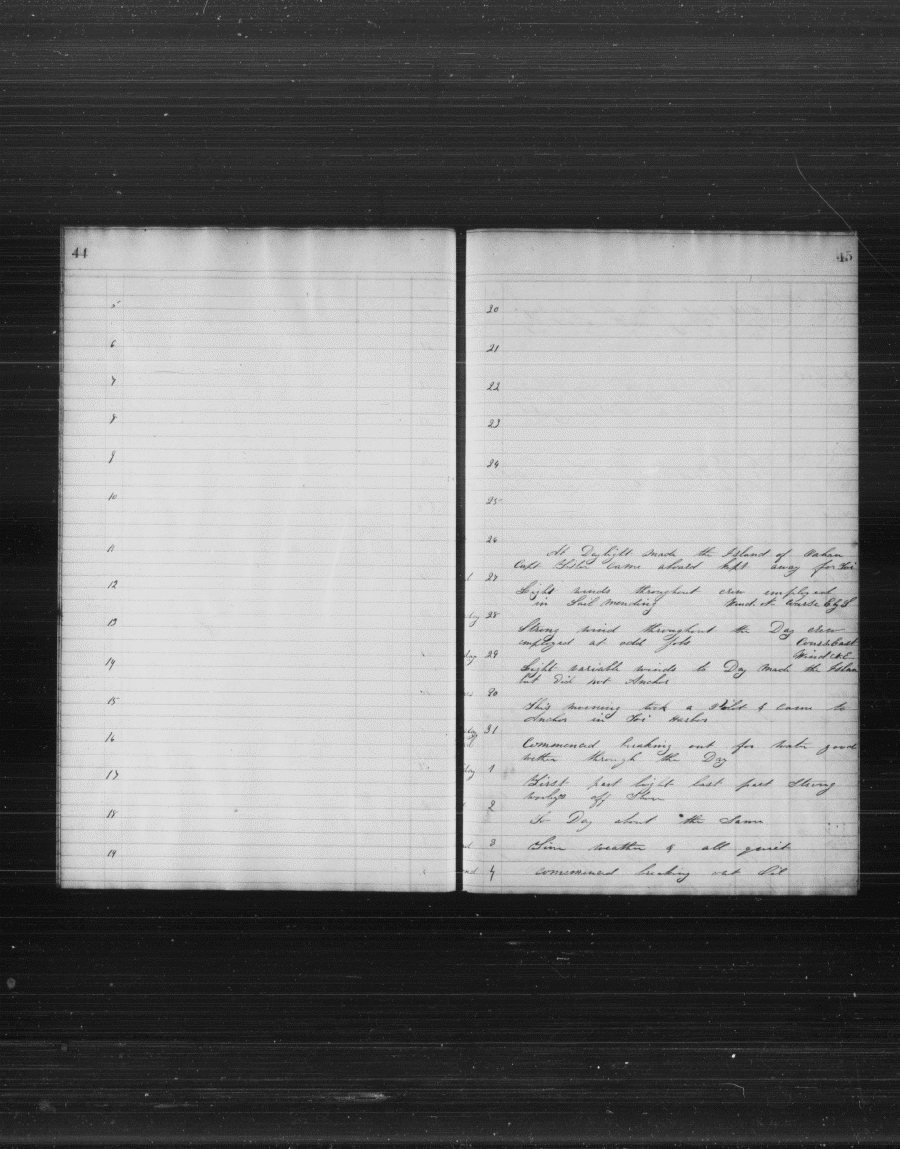 44
5
6
7
8
9
10
11
12
13
14
15
16
17
18
19
45
20
21
22
23
24
25
26
At Daylight made the Island of
Capt came aboard kept away for
27
Light winds throughout crew employed
in Sail mending Wind N Course E by S
28
Strong wind throughout the Day crew
employed at odd Jobs Course East
29 Wind
Light variable winds to Day made the Islan
but did not Anchor
30
This morning took a Pilot & came to
Anchor in Harbor
31
Commenced breaking out for water good
wether through the Day
1
First part light last part Strong
off Shore
2
To Day about the Same
3 Fine weather & all quiet
4 Commenced breaking out Oil